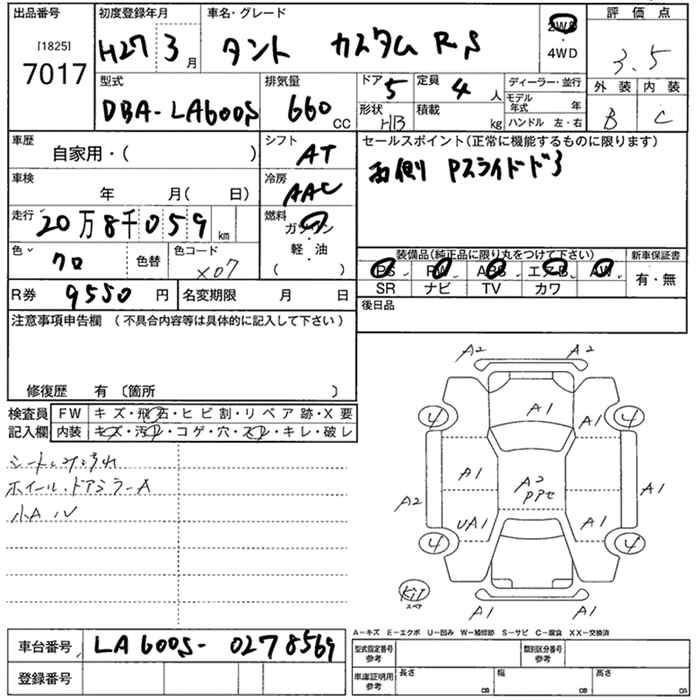 出品番号 初度登録年月 車名・グレード 評価点
[1825] 7017 H27 3月 タント カスタム RS 2WD ・ 4WD 3.5
型式 排気量 ドア 5 定員 4人 ディーラー・並行 外装 内装
DBA-LA600S 660 CC 形状 HB 積載 kg モデル年式 年 B C
ハンドル 左・右
車歴 シフト セールスポイント(正常に機能するものに限ります)
自家用・( ) AT 両側 Pスライドドア
車検 冷房
年 月( 日) AAC
走行 20万8千059km 燃料
ガソリン・軽・油
( )
色 クロ 色替 色コード X07
装備品(純正品に限り丸をつけて下さい) 新車保証書
PS PW ABS エアB AW 有・無
SR ナビ TV カワ
R券 9550 円 名変期限 月 日 後日品
注意事項申告欄 (不具合内容等は具体的に記入して下さい)
修復歴 有 〔箇所 〕
検査員 FW キズ・飛石・ヒビ割・リペア跡・X要
記入欄 内装 キズ・汚レ・コゲ・穴・スレ・キレ・破レ
ホイール・ドアミラーA
小A
A2 A2
4 A1 4
A1
A1 A2 A1
A2 A1
UA1 A1
4 4
スペア
A1 A1
A-キズ E-エクボ U-凹み W-補修跡 S-サビ C-腐食 XX-交換済
車台番号 LA600S-0278569 型式指定番号 参考 類別区分番号 参考
登録番号 車庫証明用 参考 長さ CB 幅 CB 高さ CB